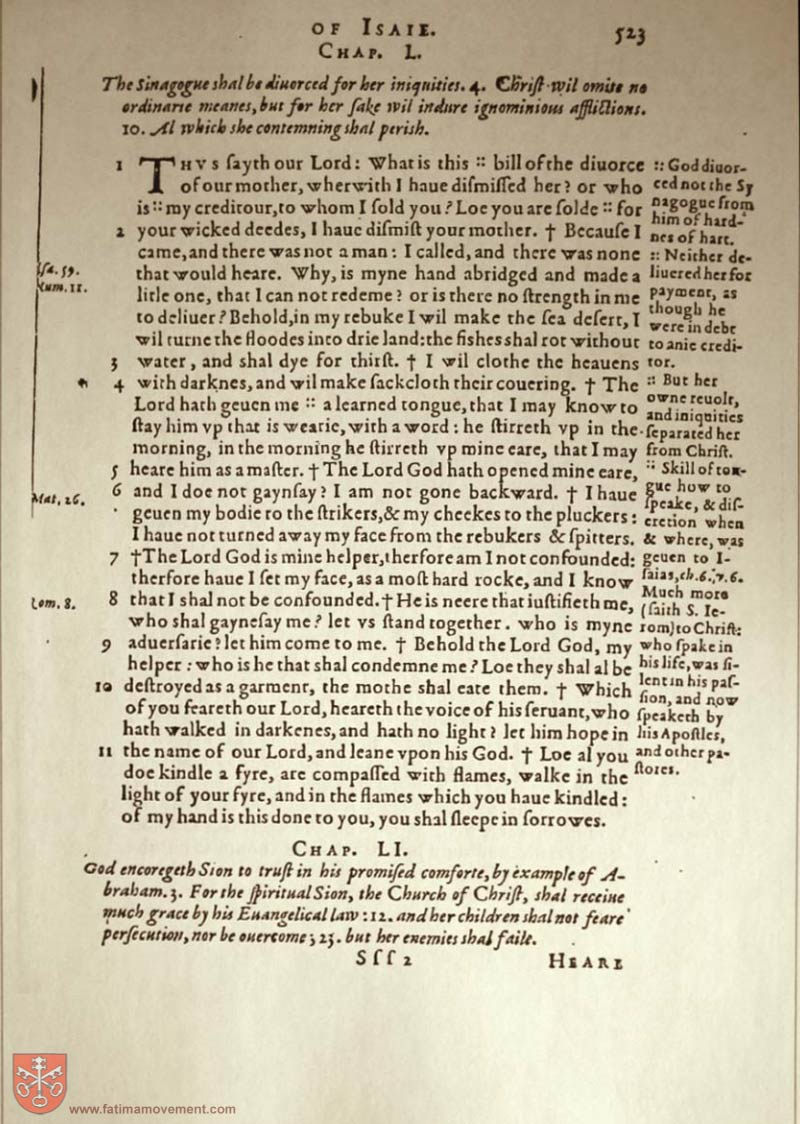 OF ISAIE. 523
CHAP. L.
The Sinagogue shal be diuorced for her iniquities. 4. Chriſt wil omitte no
ordinarie meanes, but for her ſake wil indure ignominious afflictions.
10. Al which she contemning shal perish.
1 THVS ſayth our Lord: What is this :: bill of the diuorce
of our mother, wherwith I haue diſmiſſed her? or who
is :: my creditour, to whom I ſold you? Loe you are ſolde :: for
2 your wicked deedes, I haue diſmiſt your mother. † Becauſe I
came, and there was not a man: I called, and there was none
that would heare. Why, is myne hand abridged and made a
litle one, that I can not redeme? or is there no ſtrength in me
to deliuer? Behold, in my rebuke I wil make the ſea deſert, I
wil turne the floodes into drie land: the fishes shal rot without
3 water, and shal dye for thirſt. † I wil clothe the heauens
4 with darknes, and wil make ſackcloth their couering. † The
Lord hath geuen me :: a learned tongue, that I may know to
ſtay him vp that is wearie, with a word: he ſtirreth vp in the
morning, in the morning he ſtirreth vp mine eare, that I may
5 heare him as a maſter. † The Lord God hath opened mine eare,
6 and I doe not gaynſay? I am not gone backward. † I haue
geuen my bodie to the ſtrikers, & my cheekes to the pluckers:
I haue not turned away my face from the rebukers & ſpitters.
7 † The Lord God is mine helper, therfore am I not confounded:
therfore haue I ſet my face, as a moſt hard rocke, and I know
8 that I shal not be confounded. † He is neere that iuſtifieth me,
who shal gayneſay me? let vs ſtand together. who is myne
9 aduerſarie? let him come to me. † Behold the Lord God, my
helper: who is he that shal condemne me? Loe they shal al be
10 deſtroyed as a garment, the mothe shal eate them. † Which
of you feareth our Lord, heareth the voice of his ſeruant, who
hath walked in darkenes, and hath no light? let him hope in
11 the name of our Lord, and leane vpon his God. † Loe al you
doe kindle a fyre, are compaſſed with flames, walke in the
light of your fyre, and in the flames which you haue kindled:
of my hand is this done to you, you shal ſleepe in ſorrowes.
:: God diuor-
ced not the Sy
nagogue from
him of hard-
nes of hart.
:: Neither de-
liuered her for
payment, as
though he
were in debt
to anie credi-
tor.
:: But her
owne reuolt,
and iniquities
ſeparated her
from Chriſt.
:: Skill of ton-
gue how to
ſpeake, & diſ-
cretion when
& where, was
geuen to I-
ſaias, ch. 6. 7. 6.
Much more
(ſaith S. Ie-
rom) to Chriſt:
who ſpake in
his life, was ſi-
lent in his paſ-
ſion, and now
ſpeaketh by
his Apoſtles,
and other pa-
ſtores.
Iſa. 59.
Num. 11.
Mat. 26.
Rom. 8.
CHAP. LI.
God encoregeth Sion to truſt in his promiſed comforte, by example of A-
braham. 3. For the ſpiritual Sion, the Church of Chriſt, shal receiue
much grace by his Euangelical law: 12. and her children shal not feare
perſecution, nor be ouercome; 23. but her enemies shal faile.
Sſſ 2 HEARE
www.fatimamovement.com